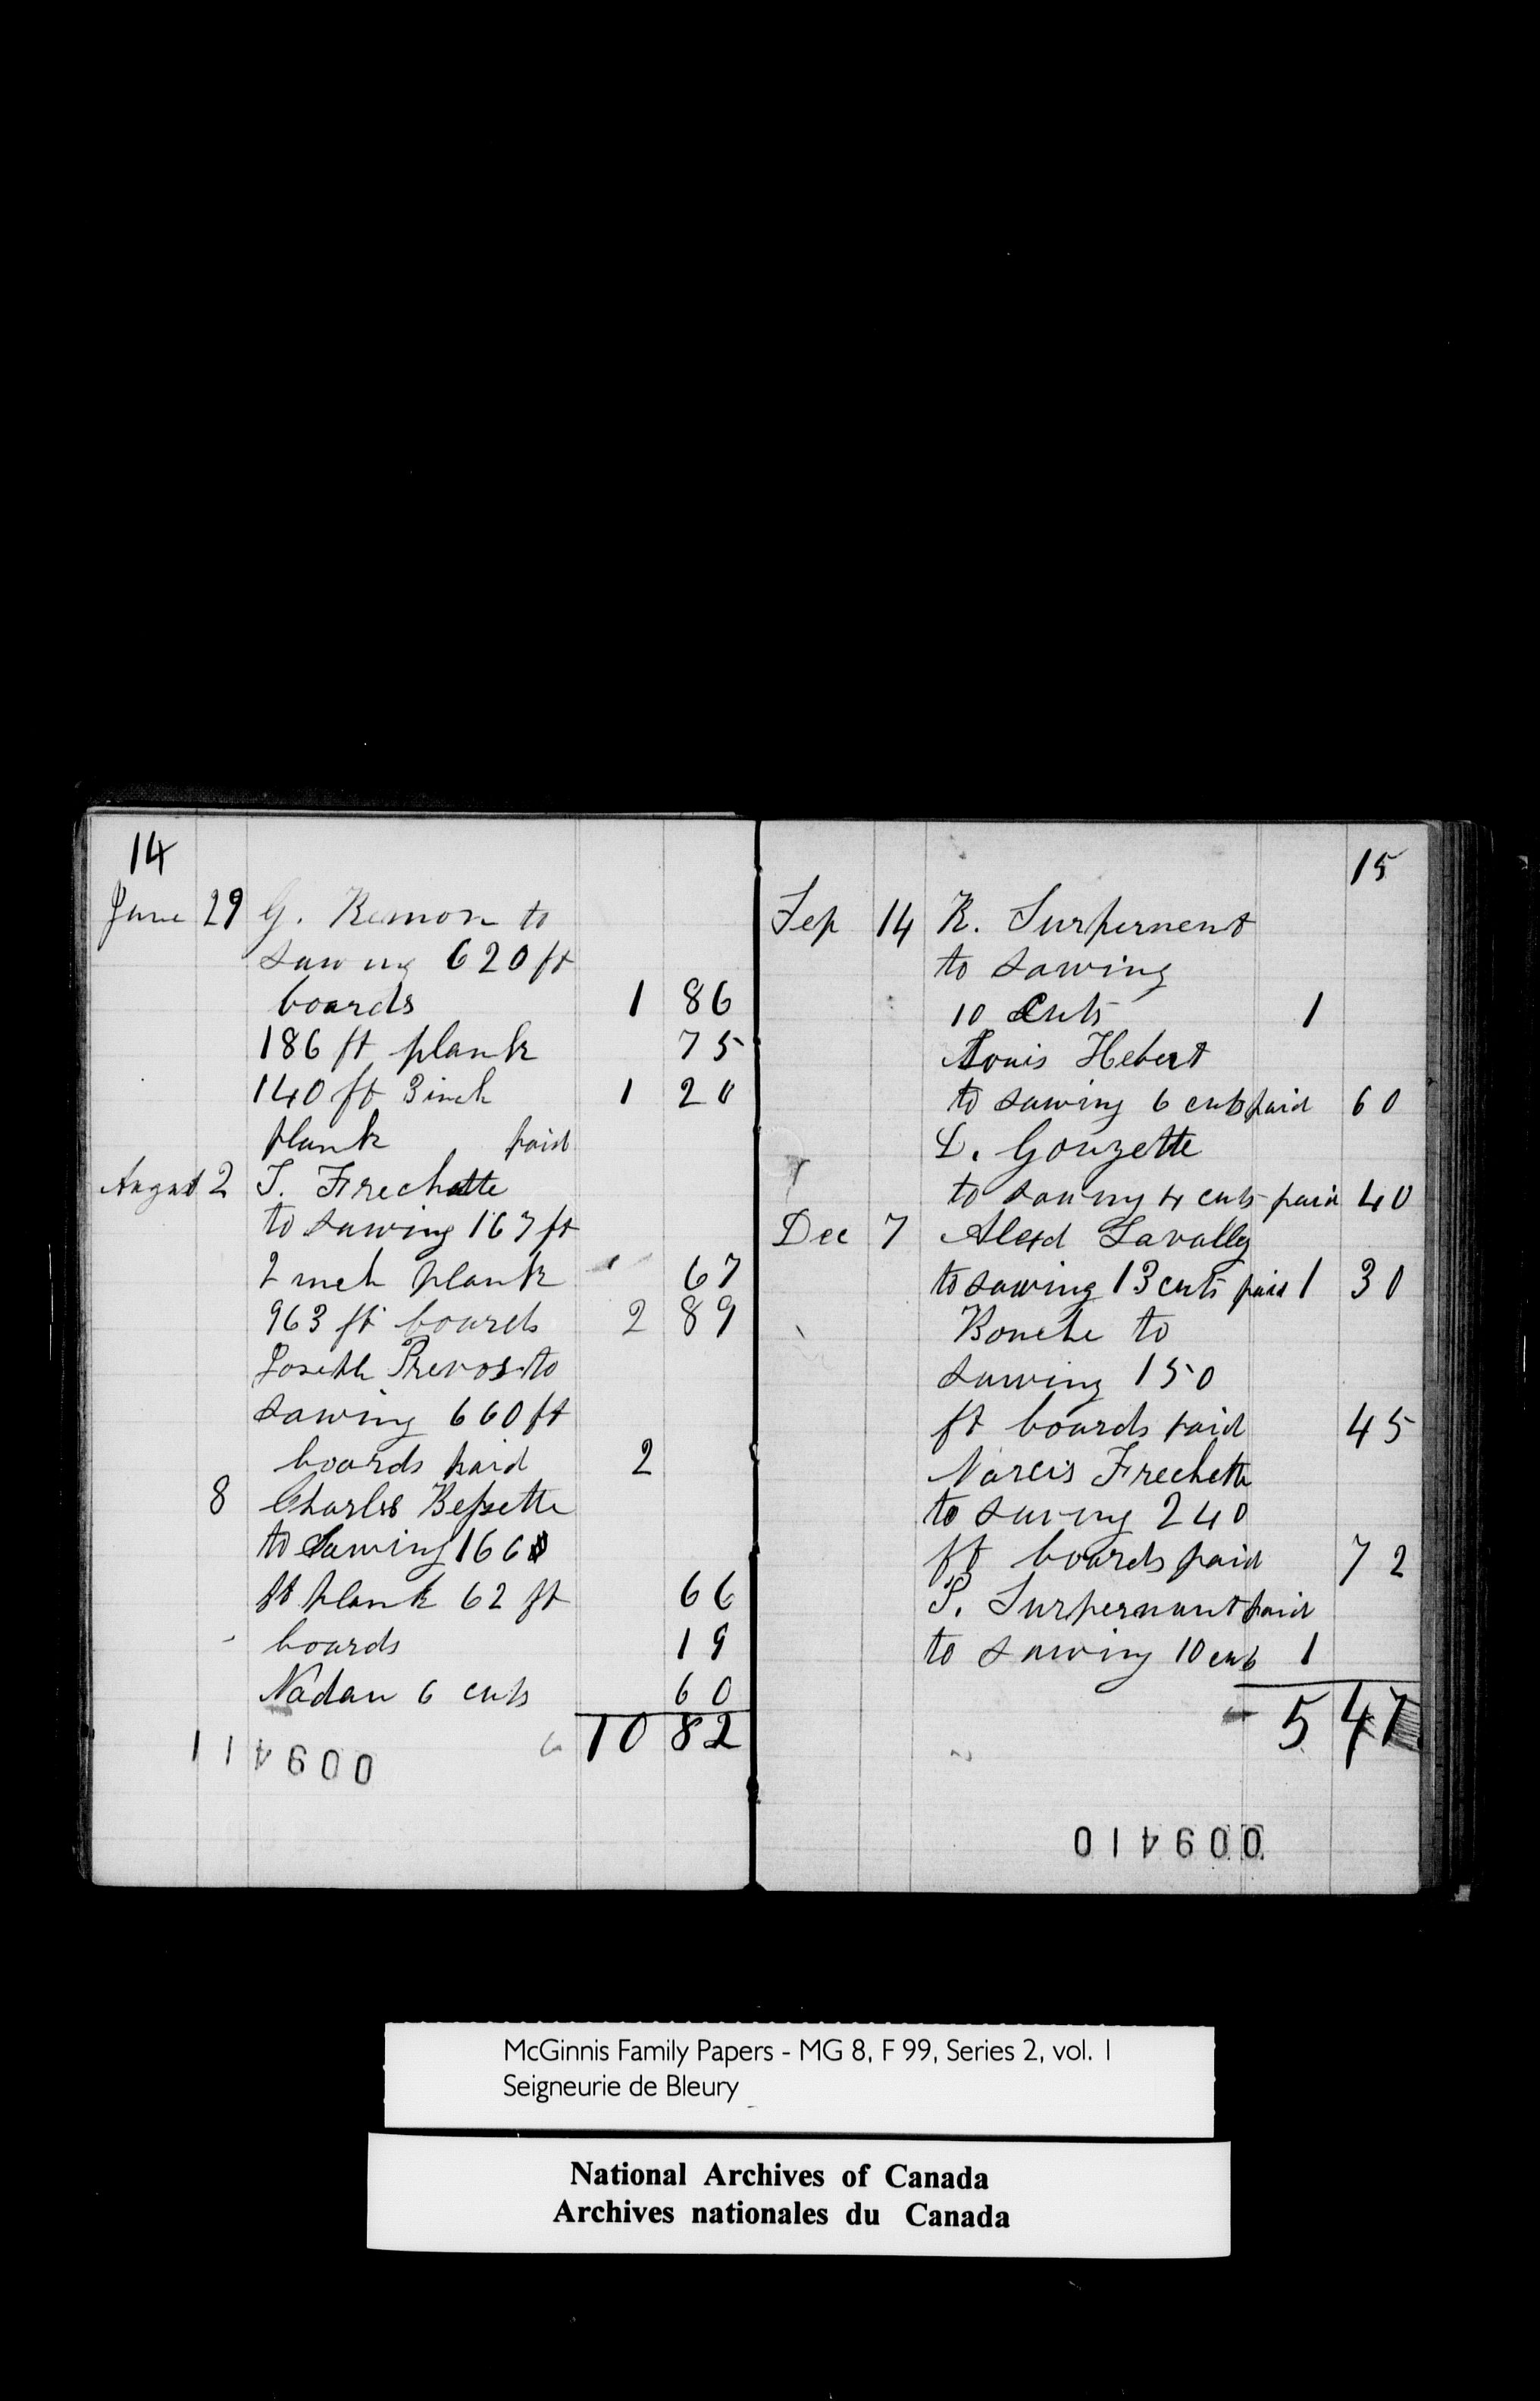 14
June 29 G. Remon to
sawing 620 ft
boards 1 86
186 ft plank 75
140 ft 3 inch 1 20
plank paid
August 2 T. Frechette
to sawing 167 ft
2 inch plank 67
963 ft boards 2 89
Joseph Prevost to
sawing 660 ft
boards paid 2
8 Charles Bessette
to Sawing 166
ft plank 62 ft 66
boards 19
Nadau 6 cuts 60
10 82
009411
15
Sep 14 R. Surpernent
to sawing
10 Cuts 1
Louis Hebert
to sawing 6 cuts paid 60
L. Gouzette
to sawing 4 cuts paid 40
Dec 7 Alexd Lavally
to sawing 13 cuts paid 1 30
Bouche to
sawing 150
ft boards paid 45
Narcis Frechette
to sawing 240
ft boards paid 72
P. Surpernant paid
to sawing 10 cuts 1
5 47
009410
McGinnis Family Papers - MG 8, F 99, Series 2, vol. 1
Seigneurie de Bleury
National Archives of Canada
Archives nationales du Canada